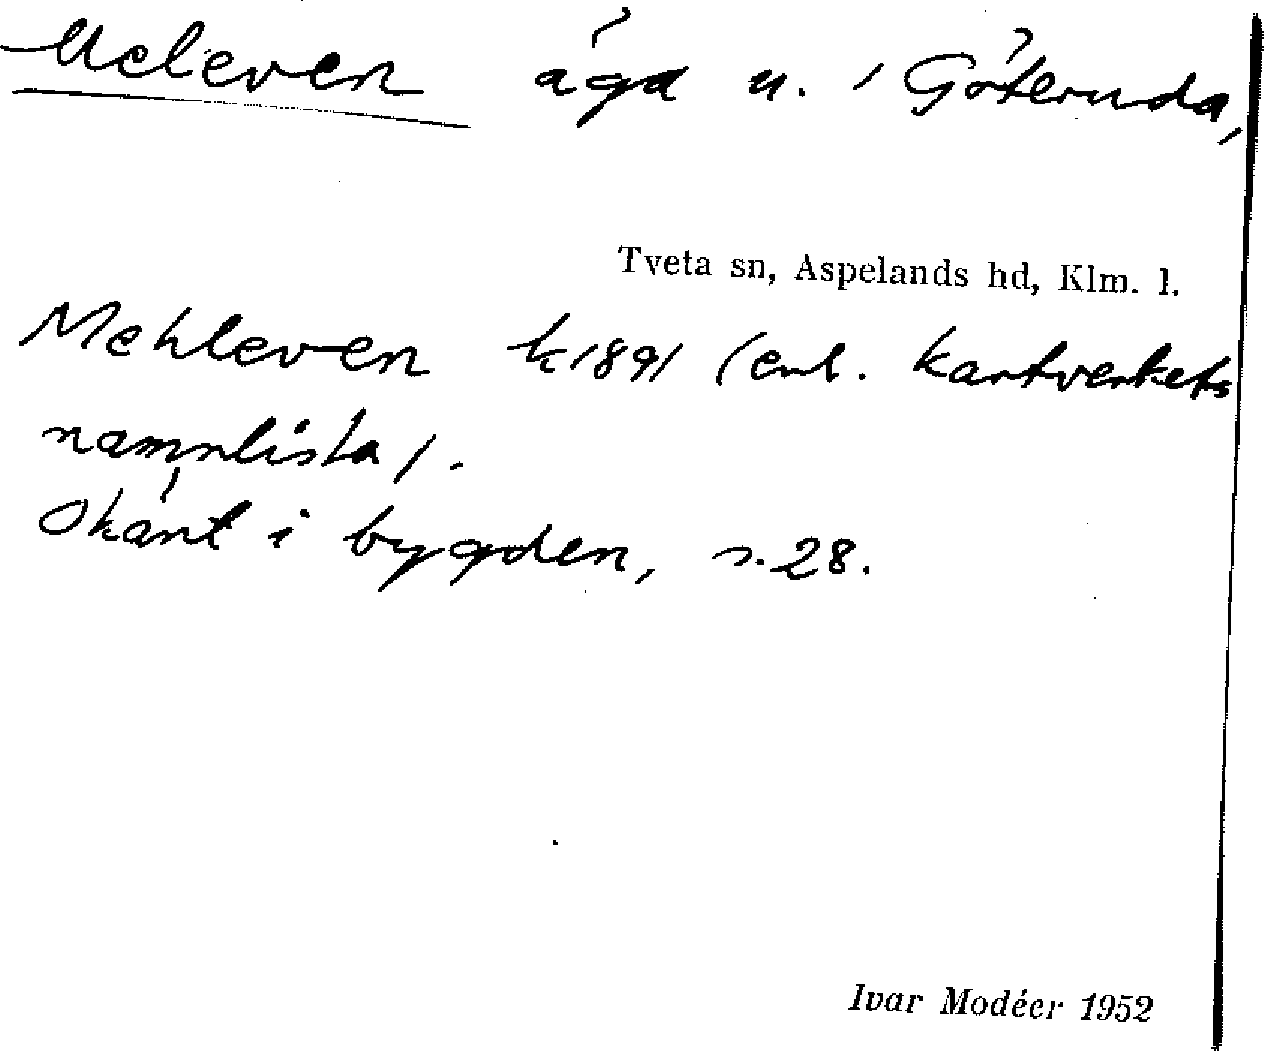 Meleven äga u. i Göteruda,
Tveta sn, Aspelands hd, Klm. l.
Mehleven k 1891 (enl. kartverkets
namnlista).
Okänt i bygden, s. 28.
Ivar Modéer 1952